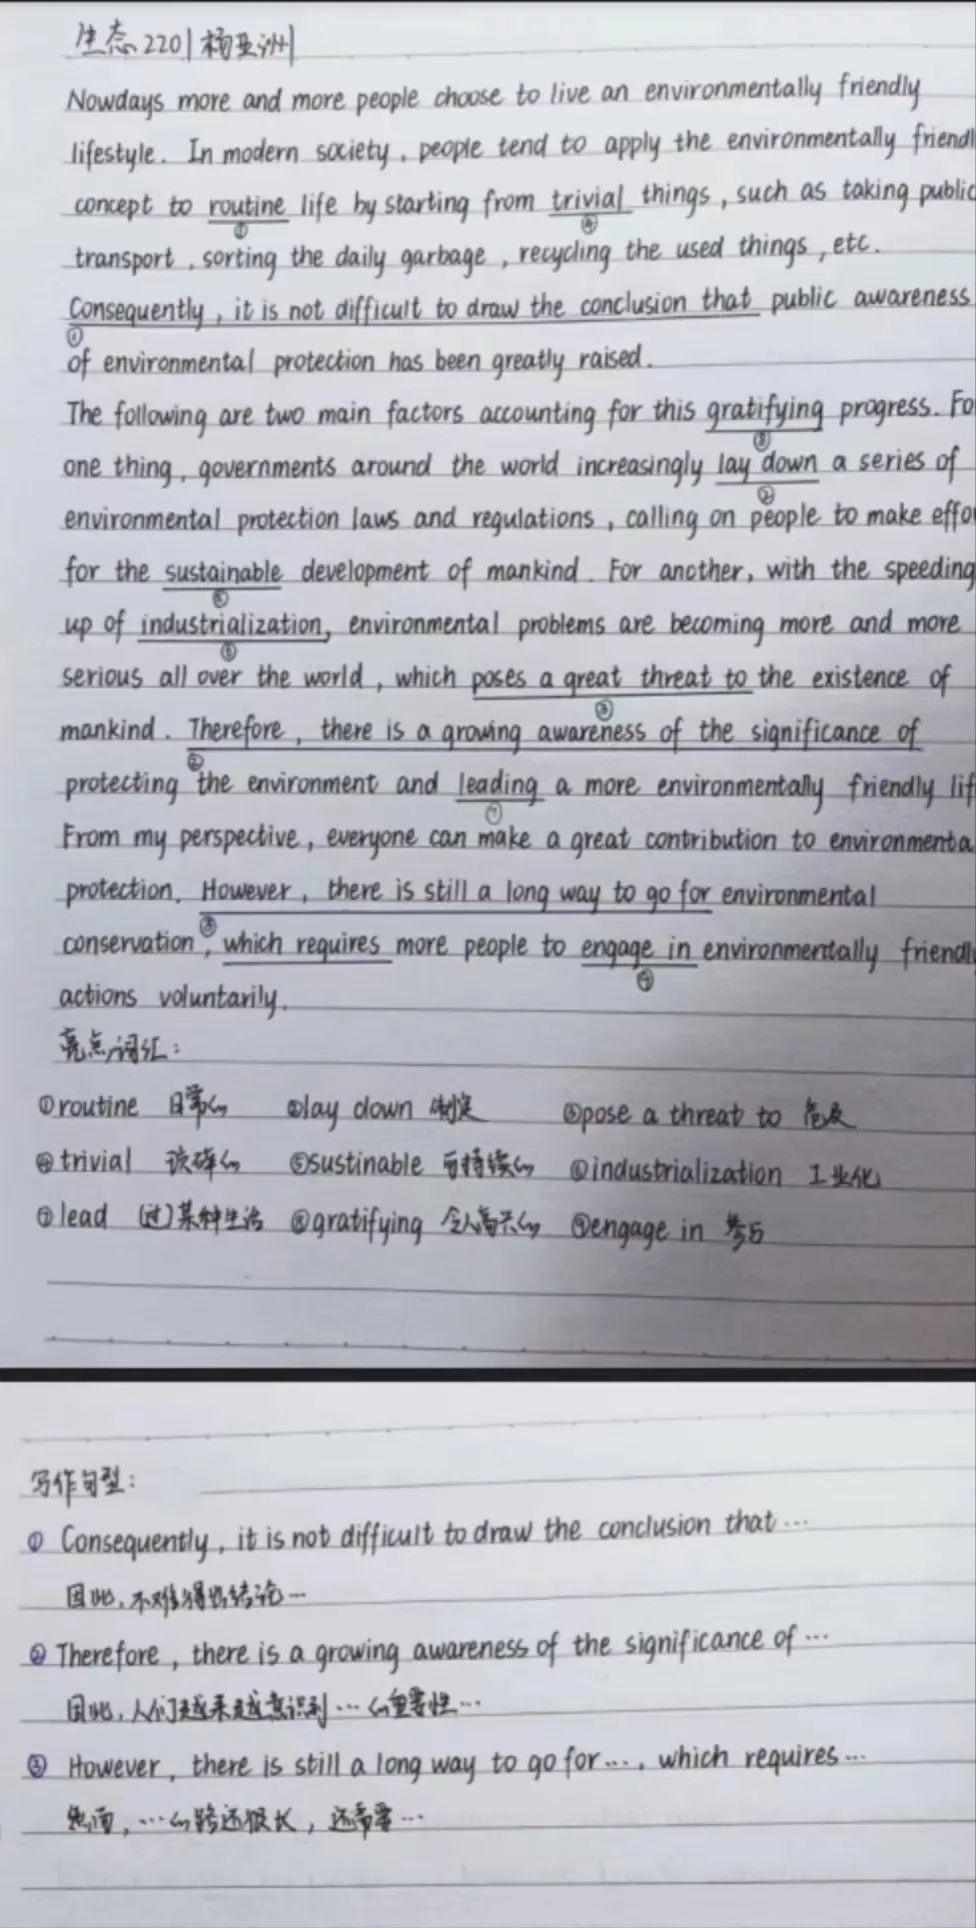 生态2201杨亚洲
Nowdays more and more people choose to live an environmentally friendly
lifestyle. In modern society, people tend to apply the environmentally friendl
concept to routine life by starting from trivial things, such as taking public
① ④
transport, sorting the daily garbage, recycling the used things, etc.
Consequently, it is not difficult to draw the conclusion that public awareness
①
of environmental protection has been greatly raised.
The following are two main factors accounting for this gratifying progress. Fo
⑧
one thing, governments around the world increasingly lay down a series of
②
environmental protection laws and regulations, calling on people to make effo
for the sustainable development of mankind. For another, with the speeding
⑤
up of industrialization, environmental problems are becoming more and more
⑥
serious all over the world, which poses a great threat to the existence of
③
mankind. Therefore, there is a growing awareness of the significance of
②
protecting the environment and leading a more environmentally friendly lif
⑦
From my perspective, everyone can make a great contribution to environmenta
protection. However, there is still a long way to go for environmental
③
conservation, which requires more people to engage in environmentally friendl
⑨
actions voluntarily.
亮点词汇:
①routine 日常的 ②lay down 制定 ③pose a threat to 危及
④trivial 琐碎的 ⑤sustinable 可持续的 ⑥industrialization 工业化
⑦lead (过)某种生活 ⑧gratifying 令人高兴的 ⑨engage in 参与
写作句型:
① Consequently, it is not difficult to draw the conclusion that ...
因此,不难得出结论...
② Therefore, there is a growing awareness of the significance of ...
因此,人们越来越意识到...的重要性...
③ However, there is still a long way to go for..., which requires ...
然而,...的路还很长,还需要...